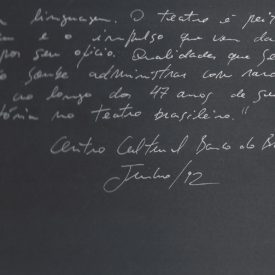 linguagem. O teatro é
e o impulso que vem da
por seu ofício. Qualidades que
soube administrar com
ao longo dos 47 anos de
no teatro brasileiro."
Centro Cultural Banco do
Junho/92